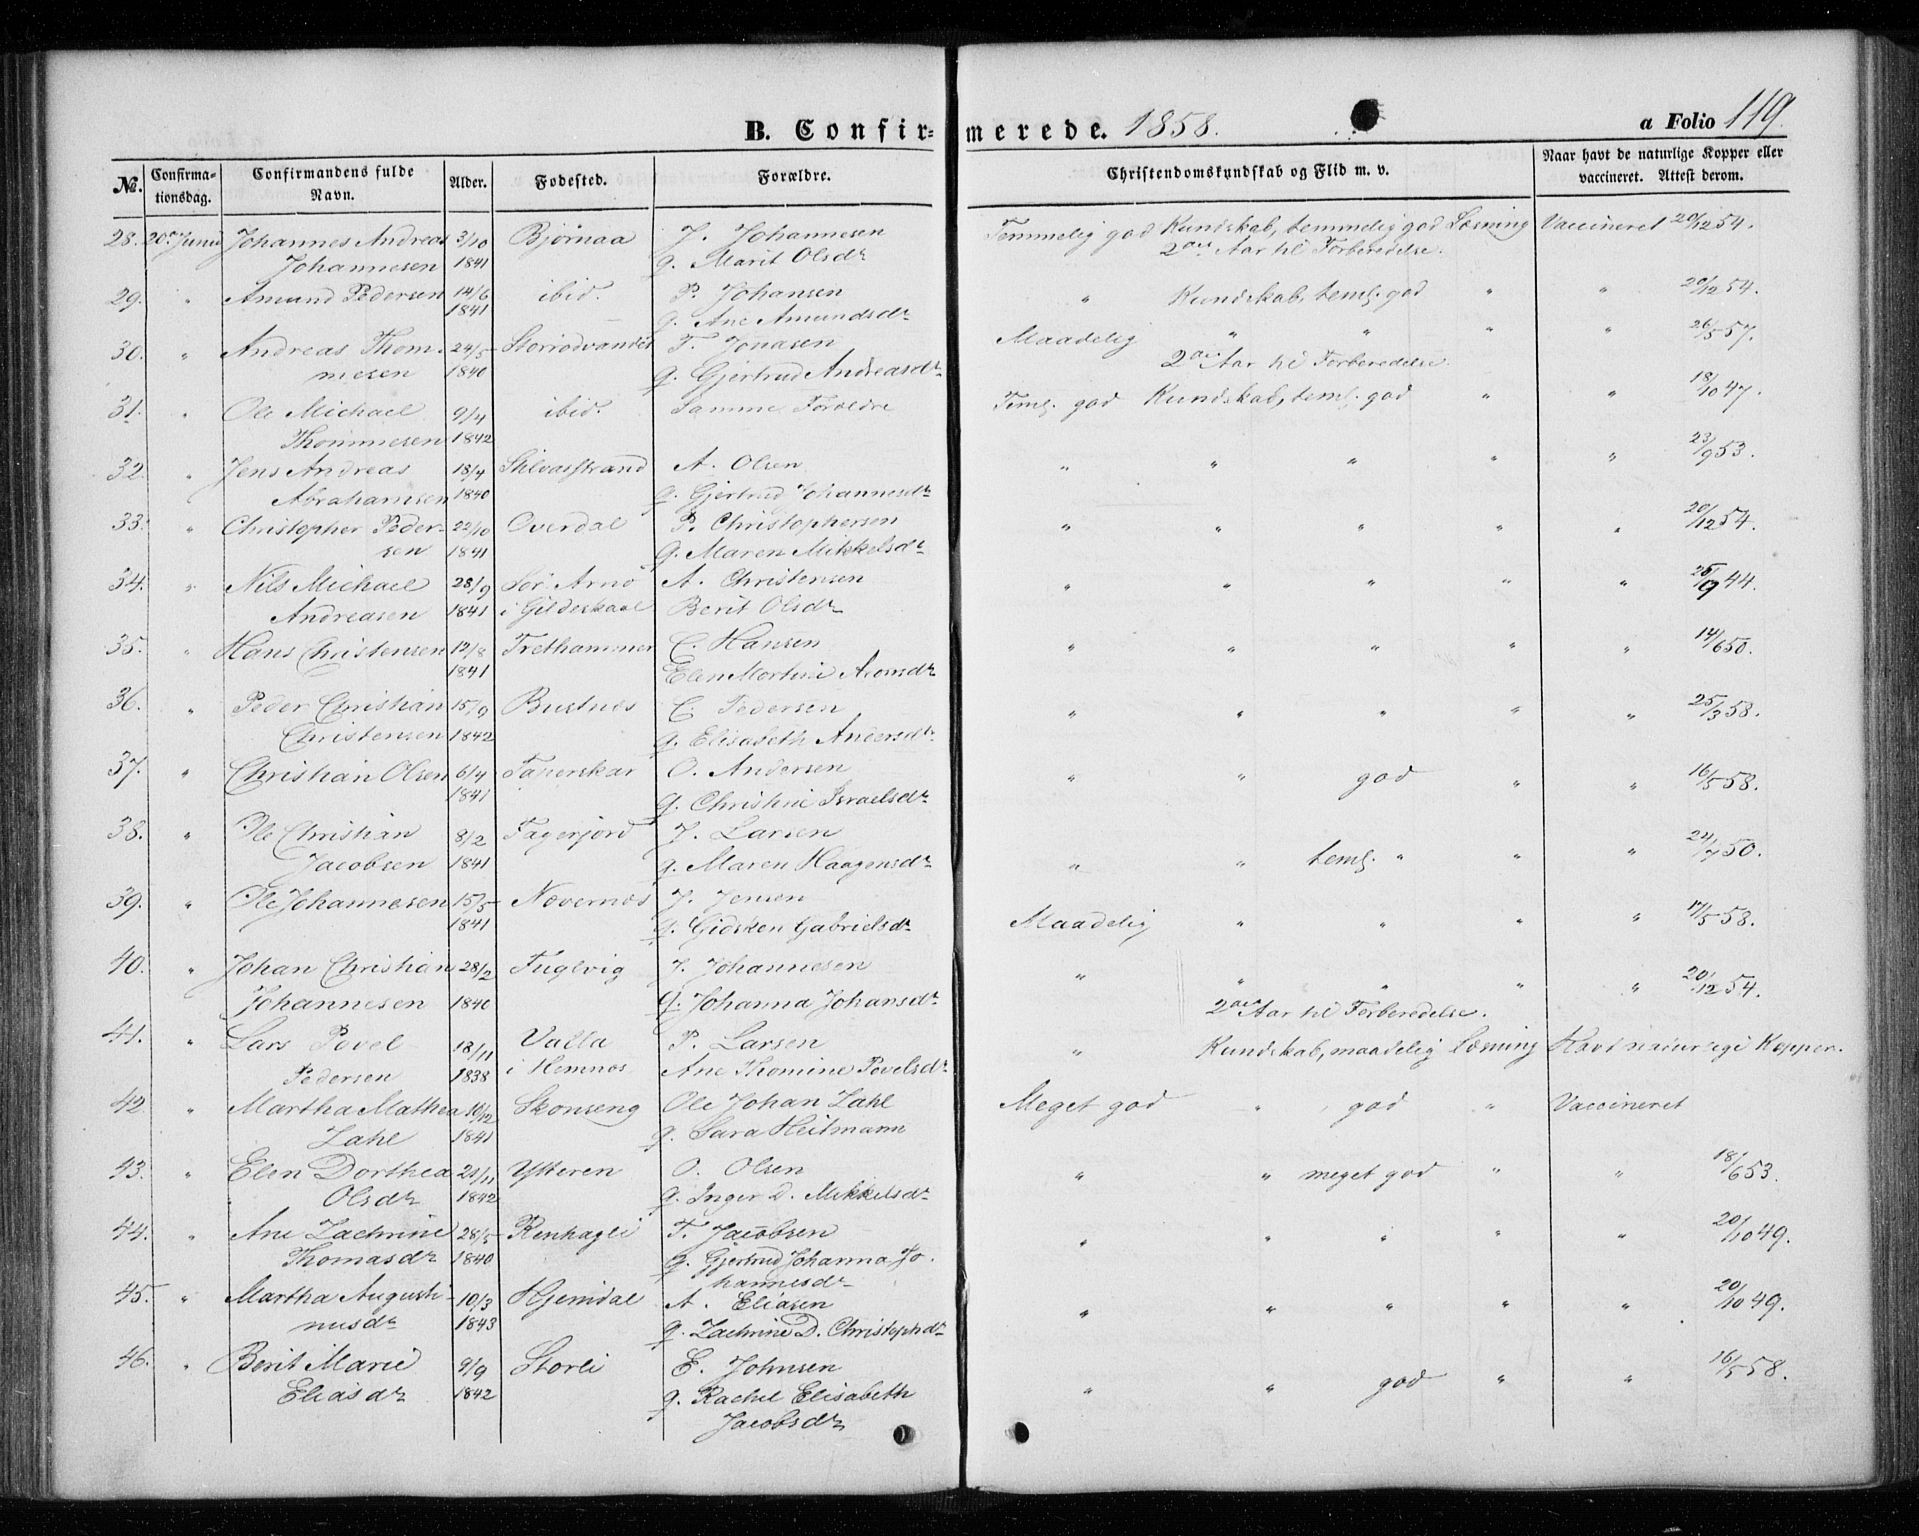 B. Confir- merede. 1858. a Folio 119.
No. Confirma-tionsdag. Confirmandens fulde Navn. Alder. Fødested. Forældre. Christendomskundskab og Flid m. v. Naar havt de naturlige Kopper eller vaccineret. Attest derom.
28. 20de Juni Johannes Andreas 3/10 Bjørnaa J. Johannesen Temmelig god Kundskab, temmelig god Læsning Vaccineret 20/12 54.
Johannesen 1841 g. Marit Olsdr 2det Aar til Forberedelse.
29. " Amund Pedersen 14/6 ibid. P. Johansen " Kundskab, teml. god " " 20/12 54.
1841 g. Ane Amundsdr
30. " Andreas Thom- 24/5 Storrødvandet T. Jonasen Maadelig " " " " 26/5 57.
mesen 1840 g. Gjertrud Andreasdr 2det Aar til Forberedelse.
31. " Ole Michael 9/4 ibid. Samme Forældre Teml. god Kundskab, teml. god " " 18/10 47.
Thommesen 1842
32. " Jens Andreas 18/4 Stilvasstrand A. Olsen " " " " " 23/9 53.
Abrahamsen 1840 g. Gjertrud Johannesdr
33. " Christopher Peder- 22/10 Overdal P. Christophersen " " " " " 20/12 54.
sen 1841 g. Maren Mikkelsdr
34. " Nils Michael 28/9 Sør Arnø A. Christensen " " " " " 44.
Andreasen 1841 i Gildeskaal Berit Olsdr
35. " Hans Christensen 12/8 Trethammer C. Hansen " " " " " 14/6 50.
1841 Elen Martine Aronsdr
36. " Peder Christian 15/9 Bustnæs C. Pedersen " " " " " 25/3 58.
Christensen 1842 g. Elisabeth Andersdr
37. " Christian Olsen 6/4 Tapperskar O. Andersen " " god " " 16/5 58.
1841 g. Christine Israelsdr
38. " Ole Christian 8/2 Fagerjord J. Larsen " " teml. " " " 24/7 50.
Jacobsen 1841 g. Maren Haagensdr
39. " Ole Johannesen 15/5 Nævernæs J. Jensen Maadelig " " " " 17/5 58.
1841 g. Gidsken Gabrielsdr
40. " Johan Christian 28/2 Fuglvig J. Johannesen " " " " " 20/12 54.
Johannesen 1840 g. Johanna Johansdr 2det Aar til Forberedelse.
41. " Lars Povel 18/11 Valla P. Larsen " Kundskab, maadelig Læsning Havt naturlige Kopper.
Pedersen 1838 i Hemnæs Ane Thomine Povelsdr
42 " Martha Mathea 10/12 Skonseng Ole Johan Zahl Meget god " god " Vaccineret
Zahl 1841 g. Sara Heitmann
43. " Elen Dorthea 21/11 Ytteren O. Olsen " " meget god " " 18/6 53.
Olsdr 1842 g. Inger D. Mikkelsdr
44. " Ane Zachrine 28/5 Renhagli T. Jacobsen " " " " " 20/10 49.
Thomasdr 1840 g. Gjertrud Johanna Jo-
hannesdr
45. " Martha Augusti- 10/3 Hjemdal A. Eliasen " " " " " 20/10 49.
nusdr 1843 g. Zachrine D. Christophdr
46. " Berit Marie 9/9 Storli E. Johnsen " " god " " 16/5 58.
Eliasdr 1842 g. Rachel Elisabeth
Jacobsdr